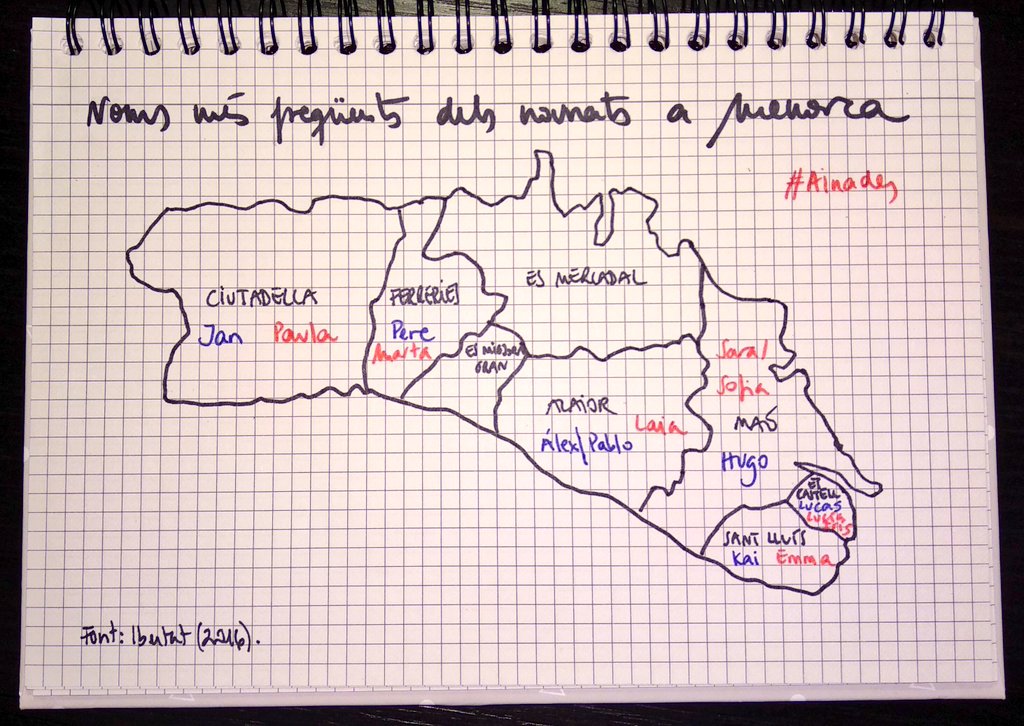 Noms més freqüents dels nounats a Menorca
#Ainades
CIUTADELLA
Jan Paula
FERRERIES
Pere
Marta
ES MERCADAL
ES MIGJORN
GRAN
ALAIOR
Laia
Álex/Pablo
Sara/
Sofia
MAÓ
Hugo
ES
CASTELL
Lucas
Lucía
SANT LLUÍS
Kai Emma
Font: Ibestat (2016).